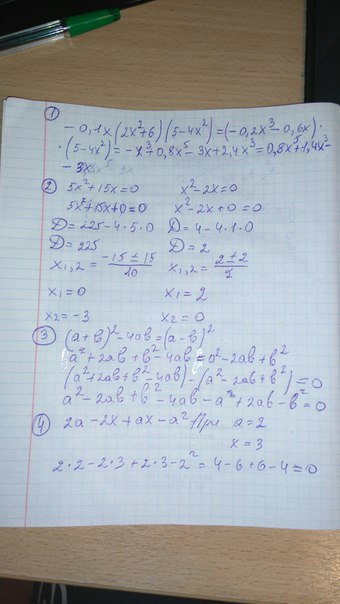 ①
- 0,1x (2x²+6) (5-4x²) = (-0,2x³-0,6x) ·
· (5-4x²) = -x³+0,8x⁵-3x+2,4x³=0,8x⁵+1,4x³-
- 3x
② 5x²+15x=0 x²-2x=0
5x²+15x+0=0 x²-2x+0=0
D=225-4·5·0 D=4-4·1·0
D=225 D=2
x₁,₂ = -15±15/10 x₁,₂ = 2±2/2
x₁=0 x₁=2
x₂=-3 x₂=0
③ (a+b)²-4ab=(a-b)²
a²+2ab+b²-4ab=a²-2ab+b²
(a²+2ab+b²-4ab)-(a²-2ab+b²)=0
a²-2ab+b²-4ab-a²+2ab-b²=0
④ 2a-2x+ax-a² При a=2
x=3
2·2-2·3+2·3-2²=4-6+6-4=0